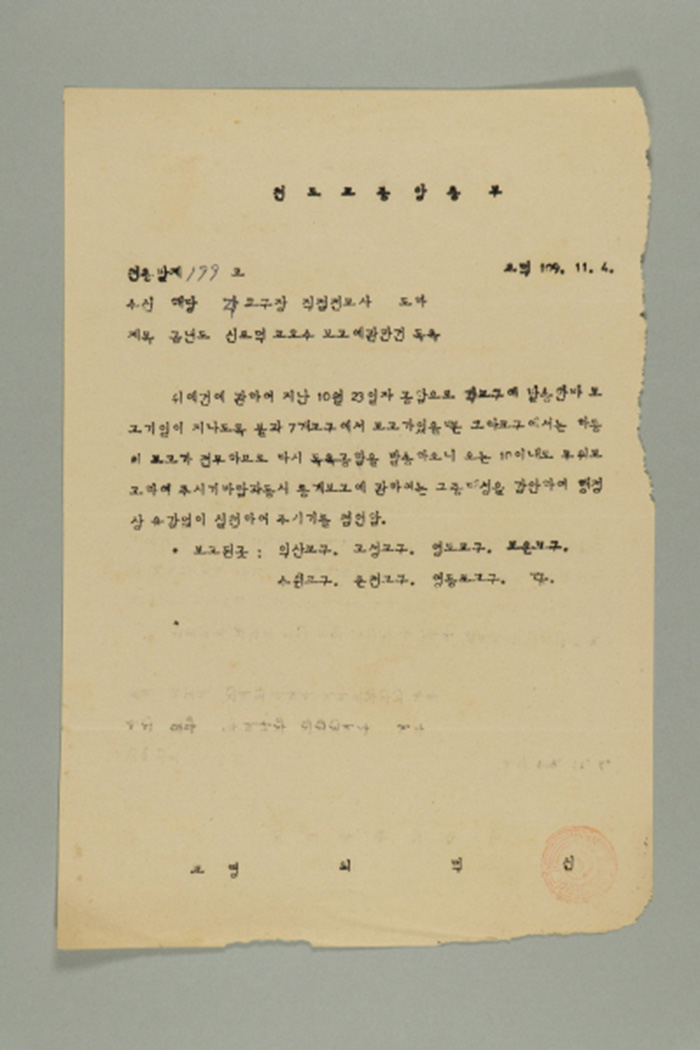 천도교중앙총부
천운발제 199 호 포덕 109. 11. 4.
수신 해당 각교구장 직접전교사 도하
제목 금년도 신포덕 교호수 보고에관한건 독촉
위에건에 관하여 지난 10월 23일자 공함으로 각교구에 발송한바 보
고기일이 지나도록 불과 7개교구에서 보고가있을뿐 그하교구에서는 하등
의 보고가 전무하므로 다시 독촉공함을 발송하오니 오는 10이내로 보
고하여 주시기바람과동시 통계보고에 관하여는 그중대성을 감안하여 행정
상 유감없이 실천하여 주시기를
* 보고된곳 : 익산교구. 고성교구. 영도교구. 보은교구.
수원교구. 춘천교구. 영등포교구.
교령 최 덕 신